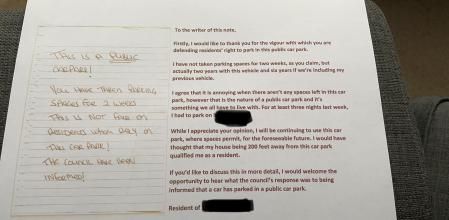 THIS IS A PUBLIC
CARPARK!
YOU HAVE TAKEN PARKING
SPACES FOR 2 WEEKS
THIS IS NOT FAIR ON
RESIDENTS WHOM RELY ON
THIS CAR PARK!
THE COUNCIL HAVE BEEN
INFORMED!
To the writer of this note,
Firstly, I would like to thank you for the vigour with which you are
defending residents' right to park in this public car park.
I have not taken parking spaces for two weeks, as you claim, but
actually two years with this vehicle and six years if we're including my
previous vehicle.
I agree that it is annoying when there aren't any spaces left in this car
park, however that is the nature of a public car park and it's
something we all have to live with. For at least three nights last week,
I had to park on
While I appreciate your opinion, I will be continuing to use this car
park, where spaces permit, for the foreseeable future. I would have
thought that my house being 200 feet away from this car park
qualified me as a resident.
If you'd like to discuss this in more detail, I would welcome the
opportunity to hear what the council's response was to being
informed that a car has parked in a public car park.
Resident of